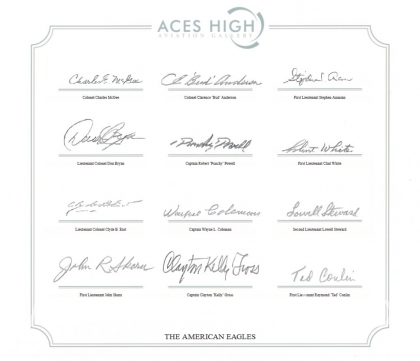 ACES HIGH
AVIATION GALLERY
Charles E. McGee
C.E. "Bud" Anderson
Colonel Charles McGee
Colonel Clarence 'Bud' Anderson
First Lieutenant Stephen Ananian
"Punchy" Powell
Clint White
Lieutenant Colonel Don Bryan
Captain Robert 'Punchy' Powell
First Lieutenant Clint White
Wayne L Coleman
Lowell Steward
Lieutenant Colonel Clyde B. East
Captain Wayne L. Coleman
Second Lieutenant Lowell Steward
John R.
Clayton Kelly Gross
Ted Conlin
First Lieutenant John
Captain Clayton 'Kelly' Gross
First Lieutenant Raymond 'Ted' Conlin
THE AMERICAN EAGLES